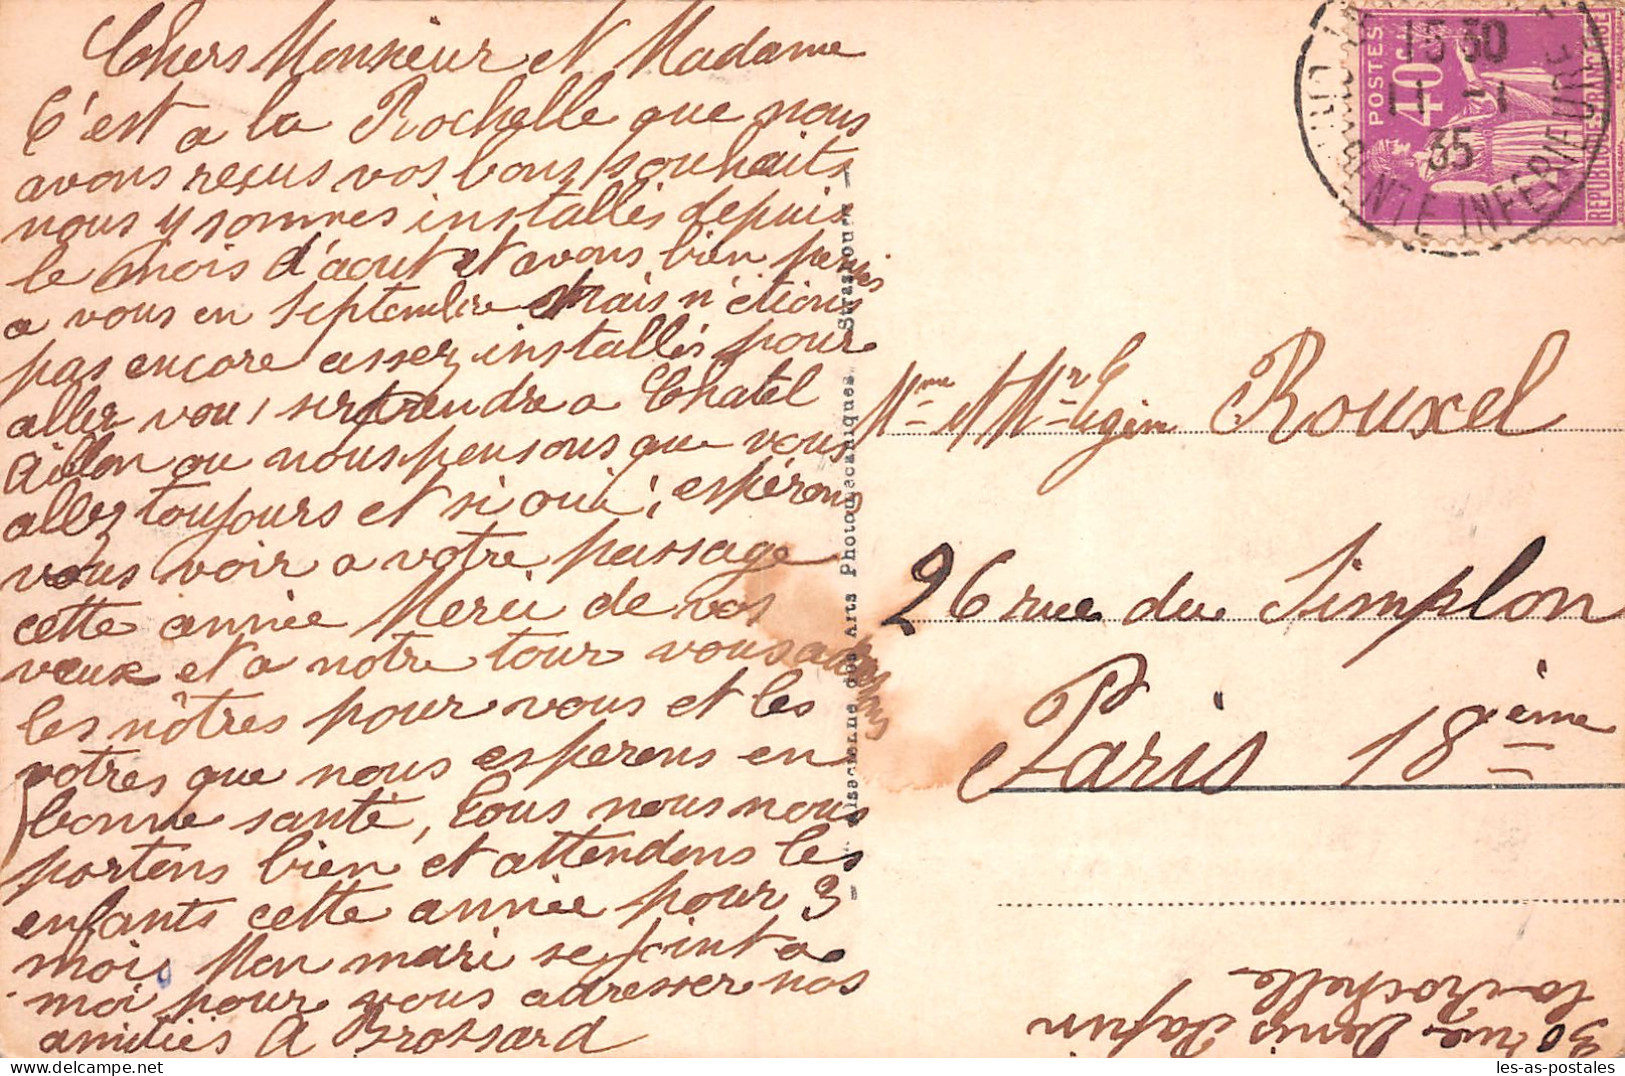 Chers Monsieur et Madame
C'est a la Rochelle que nous
avons reçus vos bons souhaits
nous y sommes installés depuis
le mois d'aout et avons bien pensés
a vous en Septembre Mais n'étions
pas encore assez installés pour
aller vous surprendre a Chatel
Aillon ou nous pensons que vous
allez toujours et si oui, espérons
vous voir a votre passage
cette année Merci de vos
veux et a notre tour vous adressons
les nôtres pour vous et les
votres que nous esperons en
bonne santé, Tous nous nous
portons bien et attendons les
enfants cette année pour 3
mois, Mon mari se joint a
moi pour vous adresser nos
amitiés A Brossard
des Arts Photomécaniques, Strasbourg
POSTES
40c
REPUBLIQUE FRANCAISE
15 30
11 -1
35
INFERIEURE
Mme et Mr Rouxel
26 rue du Simplon
Paris 18ème
30 rue Denis Papin
la Rochelle
les-as-postales